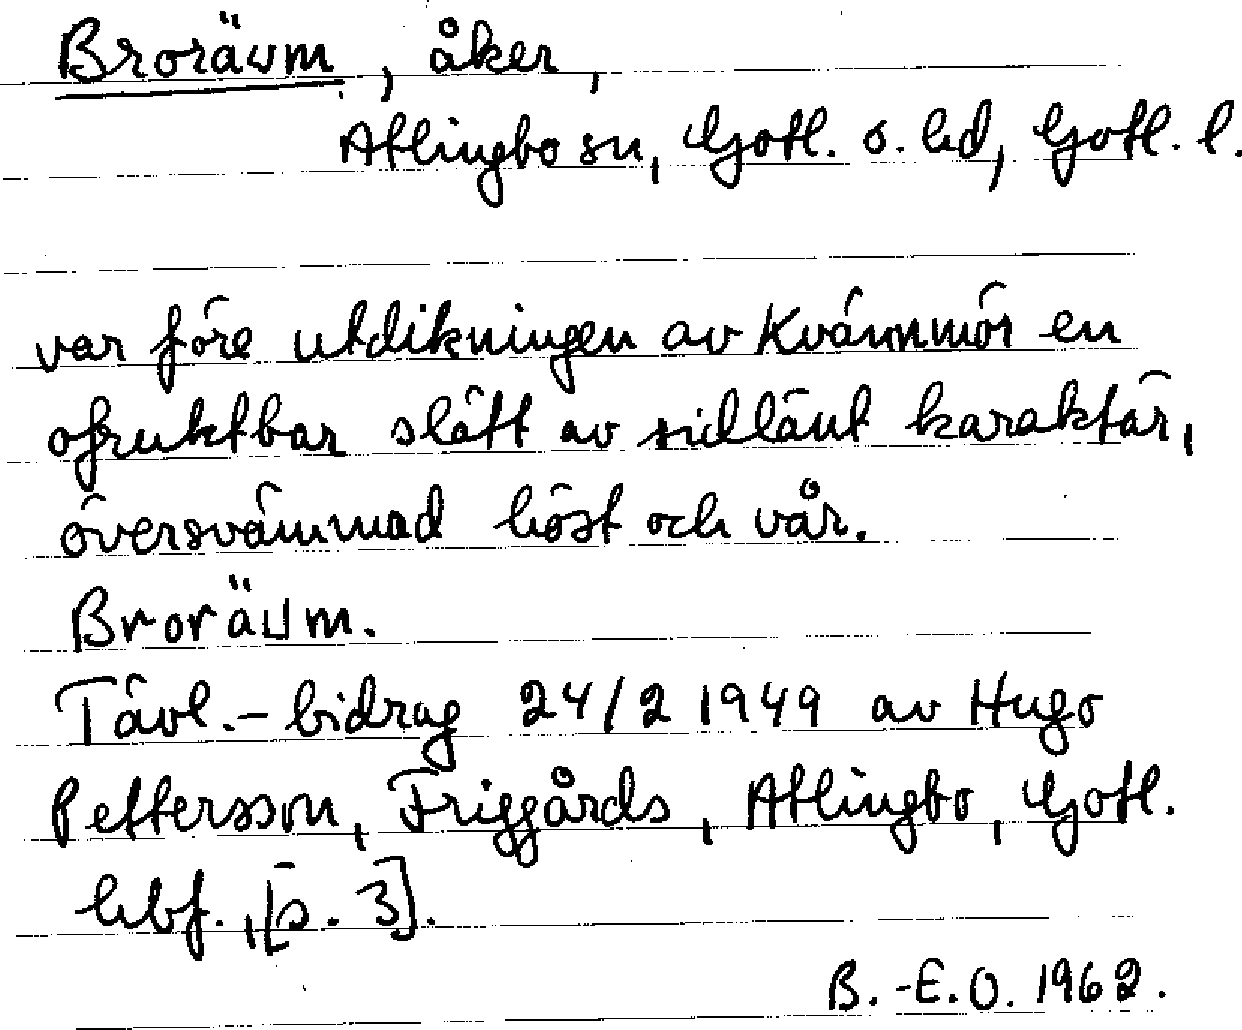 Broräum, åker,
Atlingbo sn, Gotl. s. hd, Gotl. l.
var före utdikningen av Kvännmör en
ofruktbar slätt av sidlänt karaktär,
översvämmad höst och vår.
Broräum.
Tävl.-bidrag 24/2 1949 av Hugo
Pettersson, Friggårds, Atlingbo, Gotl.
hbf., [s. 3].
B.-E.O. 1962.